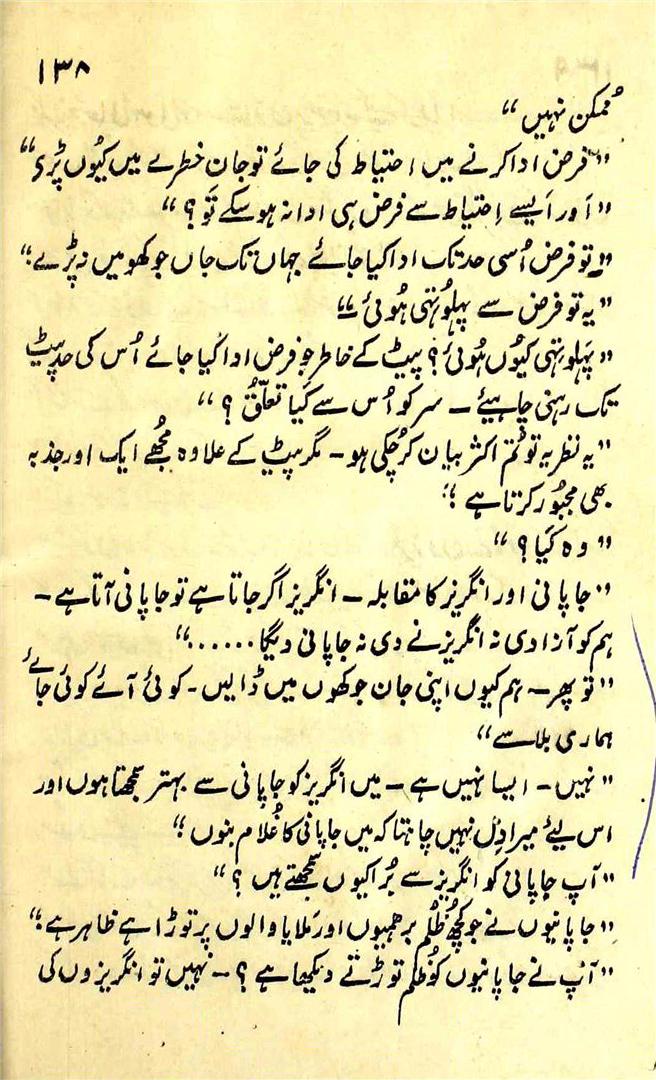 ۱۳۸
مُمکن نہیں“
”فرض ادا کرنے میں احتیاط کی جائے تو جان خطرے میں کیُوں پڑی“
”اَور اَیسے اِحتیاط سے فرض ہی ادا نہ ہو سکے تَو ؟“
”تو فرض اُسی حد تک ادا کیا جائے جہاں تک جاں جوکھو میں نہ پڑے“
”یہ تو فرض سے پہلُو تہی ہُوئی“
”پہلو تہی کیُوں ہُوئی؟ پیٹ کے خاطر جو فرض ادا کیا جائے اُس کی حد پیٹ
تک رہنی چاہیئے ــ سر کو اُس سے کیا تعلّقُ ؟“
”یہ نظریہ تو تُم اکثر بیان کر چُکی ہو ــ مگر پیٹ کے علاوہ مجُھے ایک اور جذبہ
بھی مجبُور کرتا ہے“
”وہ کیَا ؟“
”جاپانی اور انگریز کا مقابلہ ــ انگریز اگر جاتا ہے تو جاپانی آتا ہے ــ
ہم کو آزادی نہ انگریز نے دی نہ جاپانی دیگا......“
”تو پھر ــ ہم کیوں اپنی جان جوکھوں میں ڈالیں ــ کوئی آئے کوئی جائے
ہماری بلا سے“
”نہیں ــ ایسا نہیں ہے ــ میں انگریز کو جاپانی سے بہتر سمجھتا ہوں اور
اس لیئے میرا دِل نہیں چاہتا کہ میں جاپانی کا غُلام بنوں“
”آپ جاپانی کو انگریز سے بُرا کیوں سمجھتے ہیں ؟“
”جاپانیوں نے جو کچھ ظُلم برھمیوں اور مَلایا والوں پر توڑا ہے ظاہر ہے“
”آپ نے جاپانیوں کو ظُلم توڑتے دیکھا ہے ؟ ــ نہیں تو انگریزوں کی